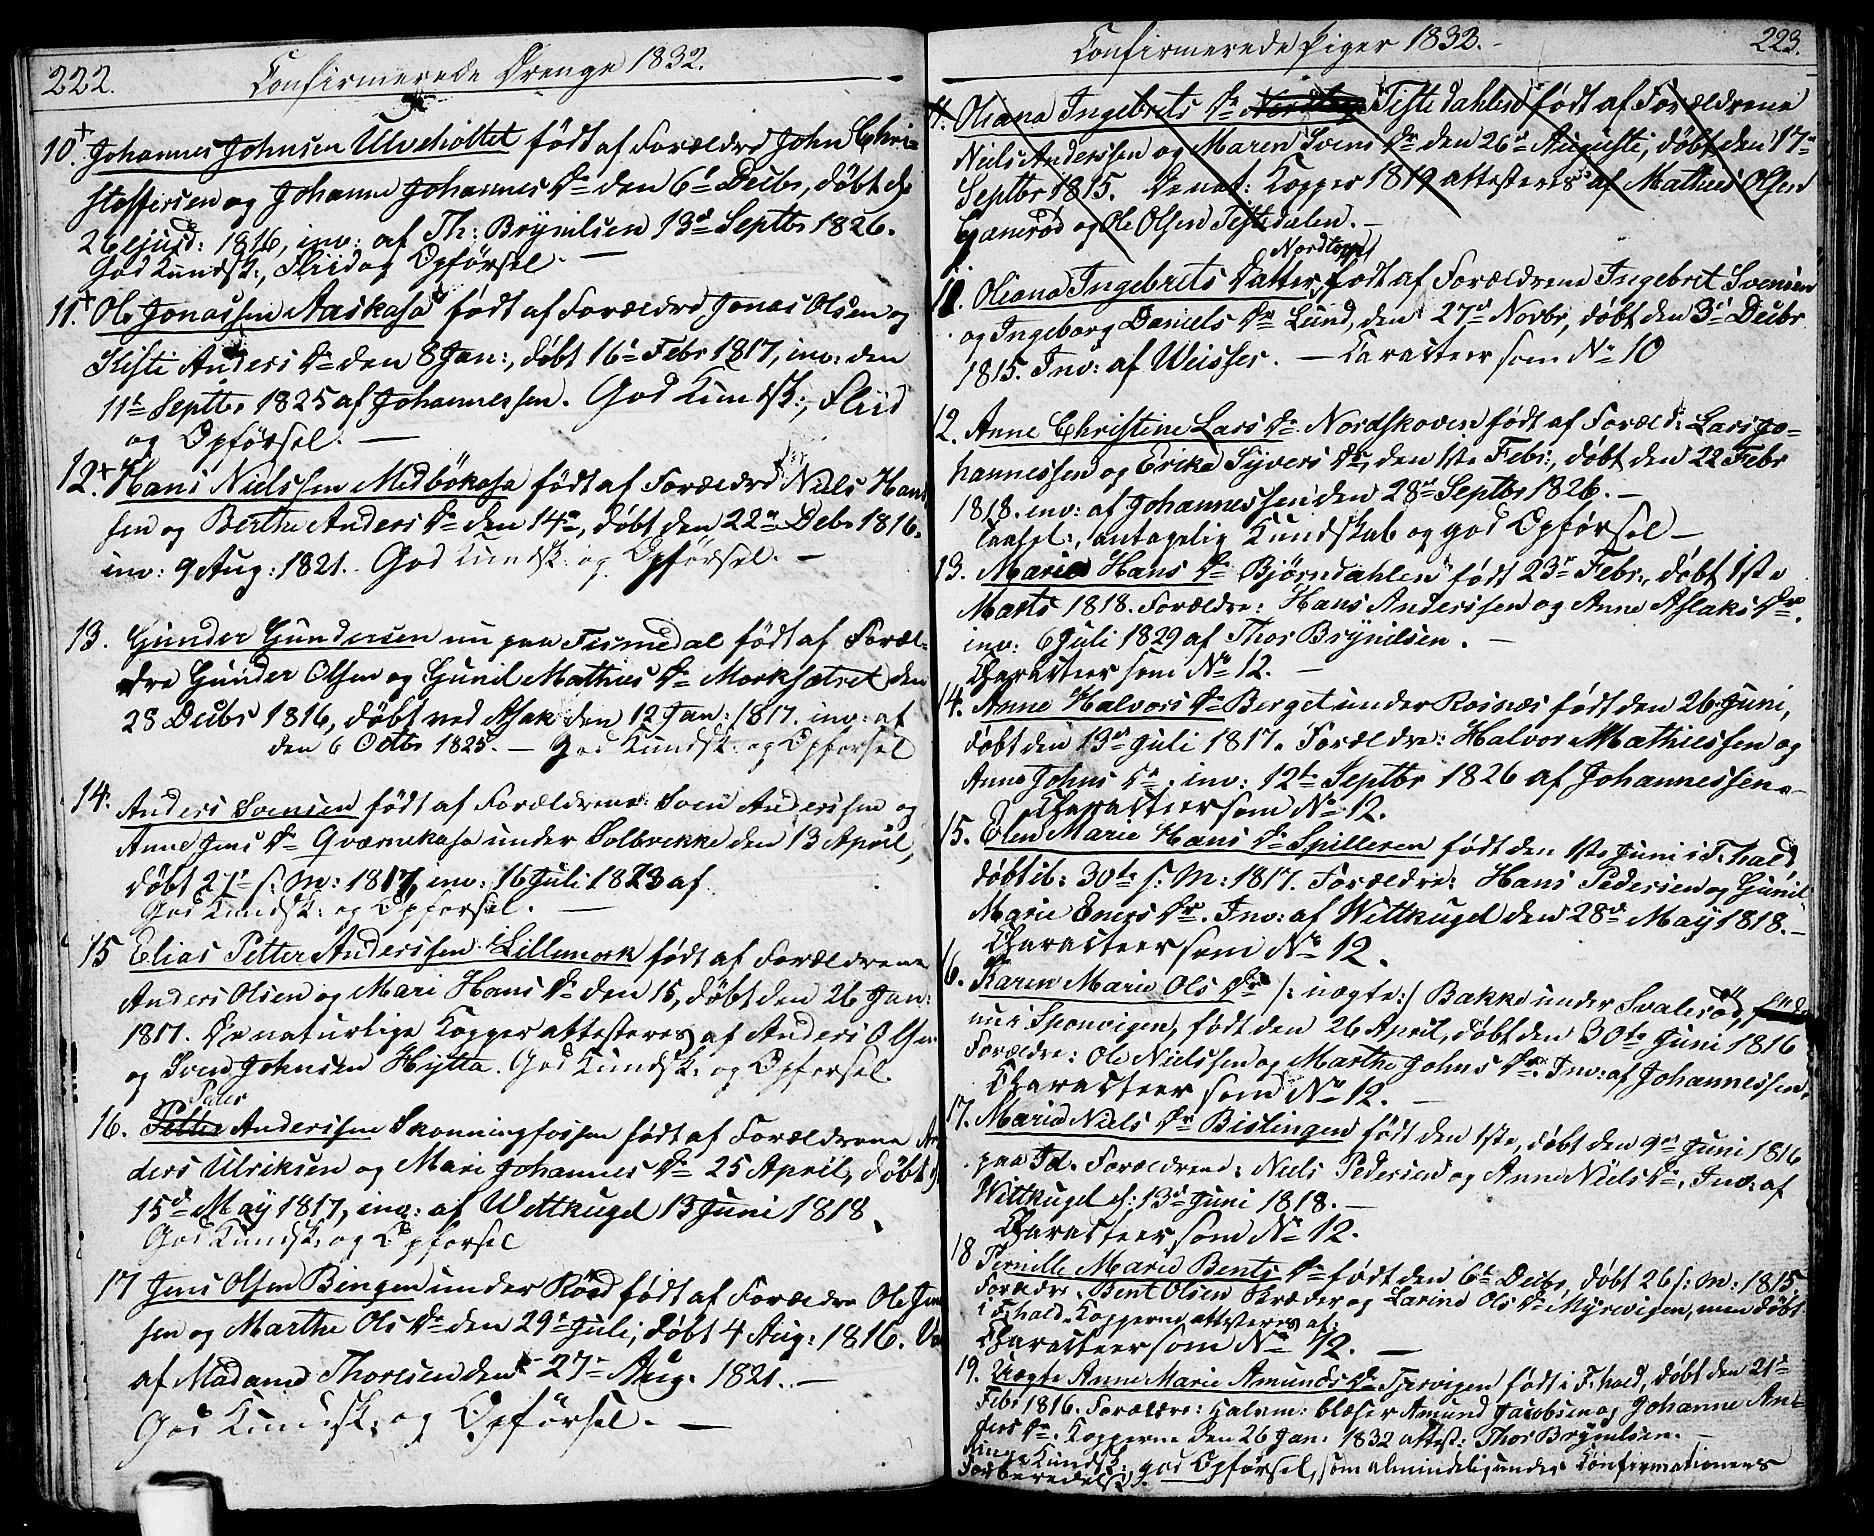 222. Confirmerede Drenge 1832.
10. Johannes Johnsen Ulveholtet født af Forældre John Chri-
stoffersen og Johanne Johannes Dr den 6t Decbr, døbt d.
26 ejusd: 1816, inv: af Th: Brynilsen 13d Septbr 1826.
God Kundsk:, Fliid og Opførsel. —
11. Ole Jonassen Aaskasa født af Forældre Jonas Olsen og
Kisti Anders Dr den 8 Jan:, døbt 16t Febr 1817, inv: den
11te Septbr 1825 af Johannessen. God Kundsk:, Fliid
og Opførsel. —
12. Hans Nielssen Midbökasa født af Forældre Niels Han-
sen og Berthe Anders Dr den 14de, døbt den 22de Debr 1816.
inv: 9 Aug: 1821. God Kundsk: og Opførsel. —
13. Gunder Gundersen nu paa Tismedal født af Foræl-
dre Gunder Olsen og Gunil Mathies Dr Morksætret den
28 Decbr 1816, døbt ved Asak den 12 Jan: 1817. inv: af
den 6 Octbr 1825. — God Kundsk: og Opførsel
14. Anders Svensen født af Forældrene: Sven Anderssen og
Anne Jens Dr Qværnekasa under Solbrekke den 13 April,
døbt 27t s: M: 1817, inv: 16 Juli 1823 af
God Kundsk: og Opførsel. —
15 Elias Petter Anderssen Lillemork født af Forældrene
Anders Olsen og Mari Hans Dr den 15, døbt den 26 Jan:
1817. De naturlige Kopper attesteres af Anders Olsen
og Sven Johnsen Hytta. God Kundsk: og Opførsel.
Peder
16. Petter Anderssen Skonningfossen født af Forældrene An-
ders Ulriksen og Mari Johannes Dr 25 April, døbt d.
15d May 1817, inv: af Wittkugel 13 Juni 1818.
God Kundsk: og Opførsel
17 Jens Olsen Bingen under Röd født af Forældre Ole Jen-
sen og Marthe Ols Dr den 29t Juli, døbt 4 Aug: 1816. Va
af Madame Thoresen den 27de Aug. 1821. —
God Kundsk: og Opførsel. —
Confirmerede Piger 1832. 223.
11. Oliana Ingebrets Dr Nordtorp Tistedahlen født af Forældrene
Niels Anderssen og Maren Svens Dr den 26de Augusti, døbt den 17de
Septbr 1815. De nat: Kopper 1819 attesteres af Mathies Olsen
Gaaserød og Ole Olsen Tistedalen. —
Nordtorp
11. Oliana Ingebrets Datter født af Forældrene Ingebret Svensen
og Ingeborg Daniels Dr Lund, den 27d Novbr, døbt den 3d Decbr
1815. Inv: af Weisser. — Caracteer som No 10
12. Anne Christine Lars Dr Nordskoven født af Foræld: Lars Jo-
hannessen og Ericka Syvers Dr, den 1ste Febr:, døbt den 22 Febr
1818. inv: af Johannessen den 28de Septbr 1826. —
antagelig Kundskab og god Opførsel —
13. Maria Hans Dr Bjørndahlen født 23de Febr., døbt 1ste
Marts 1818. Forældre: Hans Anderssen og Anne Aslaks Dr.
inv: 6 Juli 1829 af Thor Brynilsen. —
Characteer som No 12. —
14. Anne Halvors Dr Berget under Rosnæs født den 26 Juni,
døbt den 13d Juli 1817. Forældre: Halvor Mathiessen og
Anne Johns Dr. inv: 12te Septbr 1826 af Johannessen.
Characteer som No 12.
15. Elen Marie Hans Dr Spilleren født den 1ste Juni i F.hald,
døbt ib: 30te s: M: 1817. Forældre: Hans Pedersen og Gunil
Marie Eners Dr. Inv: af Wittkugel den 28d May 1818. —
Characteer som No 12.
16. Karen Marie Ols Dr /: uægte :/ Bakke under Svalerød,
nu i Sponvigen, født den 26 April, døbt den 30te Juni 1816
Forældre: Ole Nielssen og Marthe Johns Dr. Inv: af Johannessen.
Characteer som No 12. —
17. Maria Niels Dr Bislingen født den 1ste, døbt den 9de Juni 1816
paa Id. Forældrene: Niels Pedersen og Anne Niels Dr. Inv: af
Wittkugel d: 13d Juni 1818. —
Characteer som No 12.
18 Pernille Marie Bents Dr født den 6t Decbr, døbt 26 s: M: 1815,
Forældre. Bent Olsen Skræder og Larine Ols Dr Myrevigen, men døbt
i F.hald. Kopperne attesteres af:
Characteer som No 12. —
19. Uægte Anne Marie Amunds Dr Tjervigen født i F.hald, døbt den 21d
Febr 1816. Forældre: Kalam: blæser Amund Jacobsen og Johanne An-
ders Dr. Kopperne den 26 Jan: 1832 attest: Thor Brynilsen. —
Ringe Kundsk: god Opførsel, som almindelig under Konfirmationens
Forberedelse.